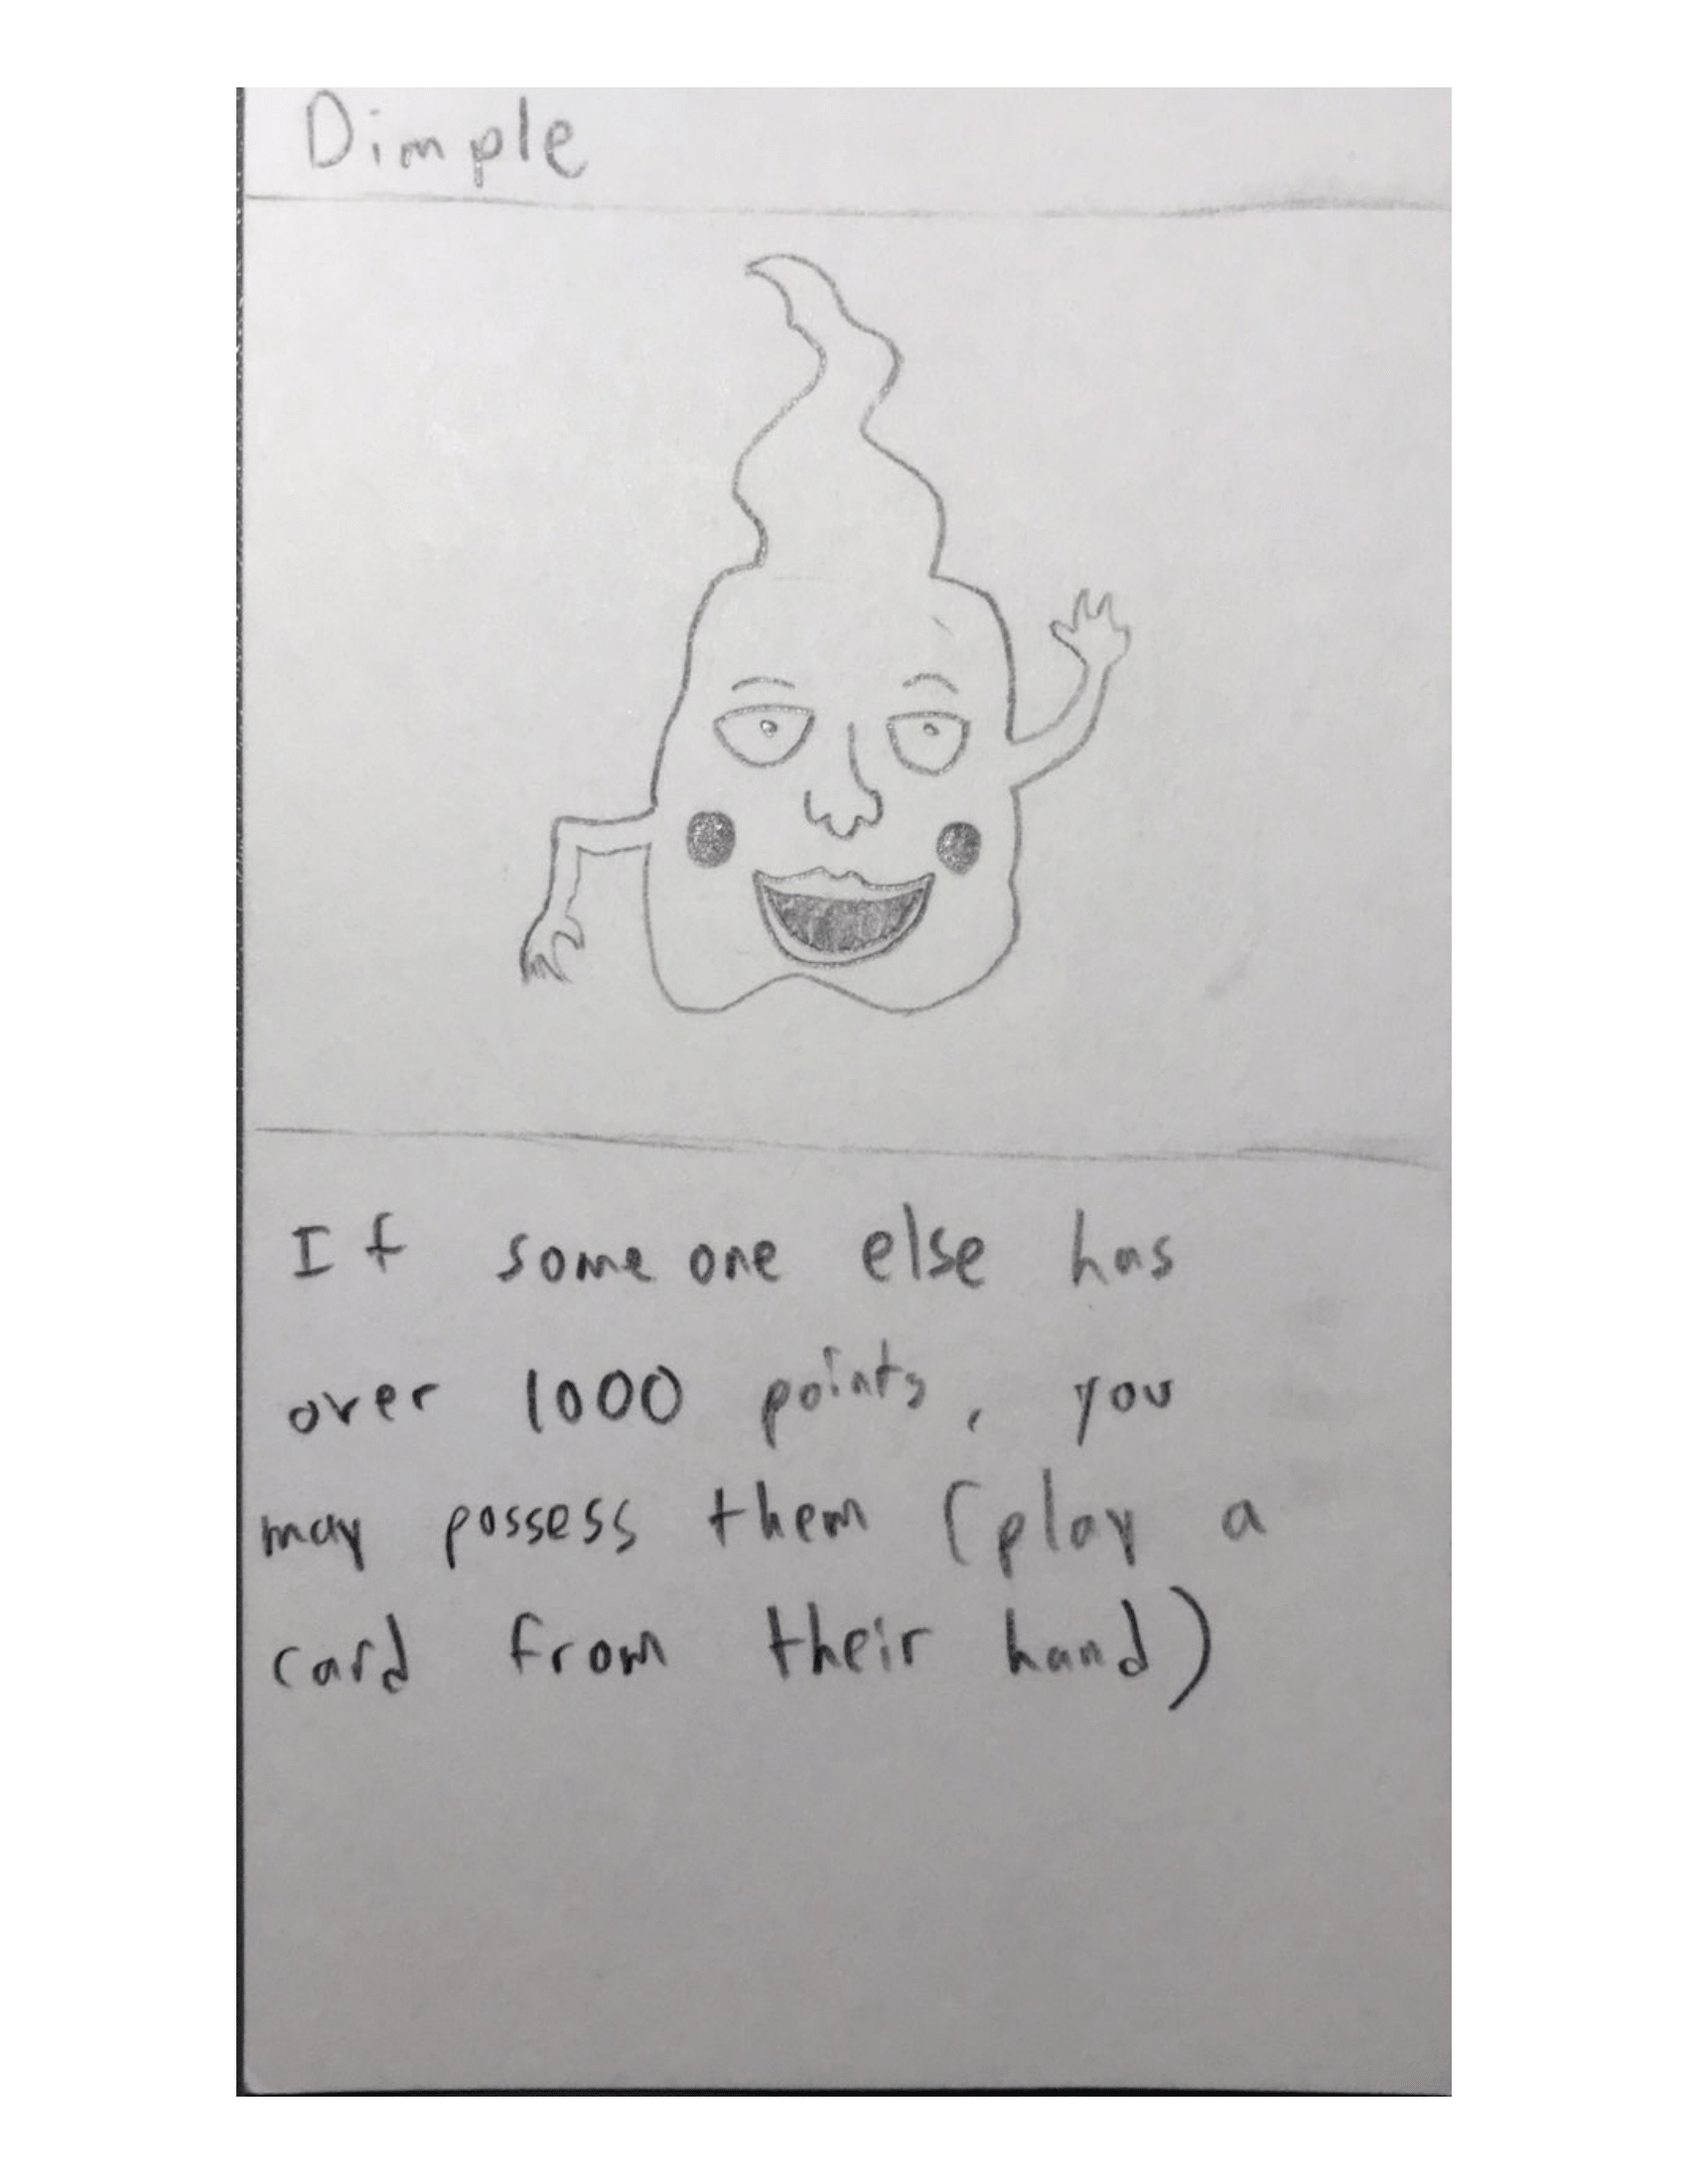 Dimple
If someone else has
over 1000 points, you
may possess them (play a
card from their hand)